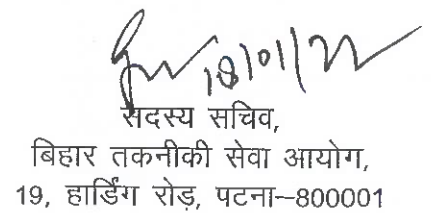 18/01/22
सदस्य सचिव,
बिहार तकनीकी सेवा आयोग,
19, हार्डिंग रोड़, पटना–800001